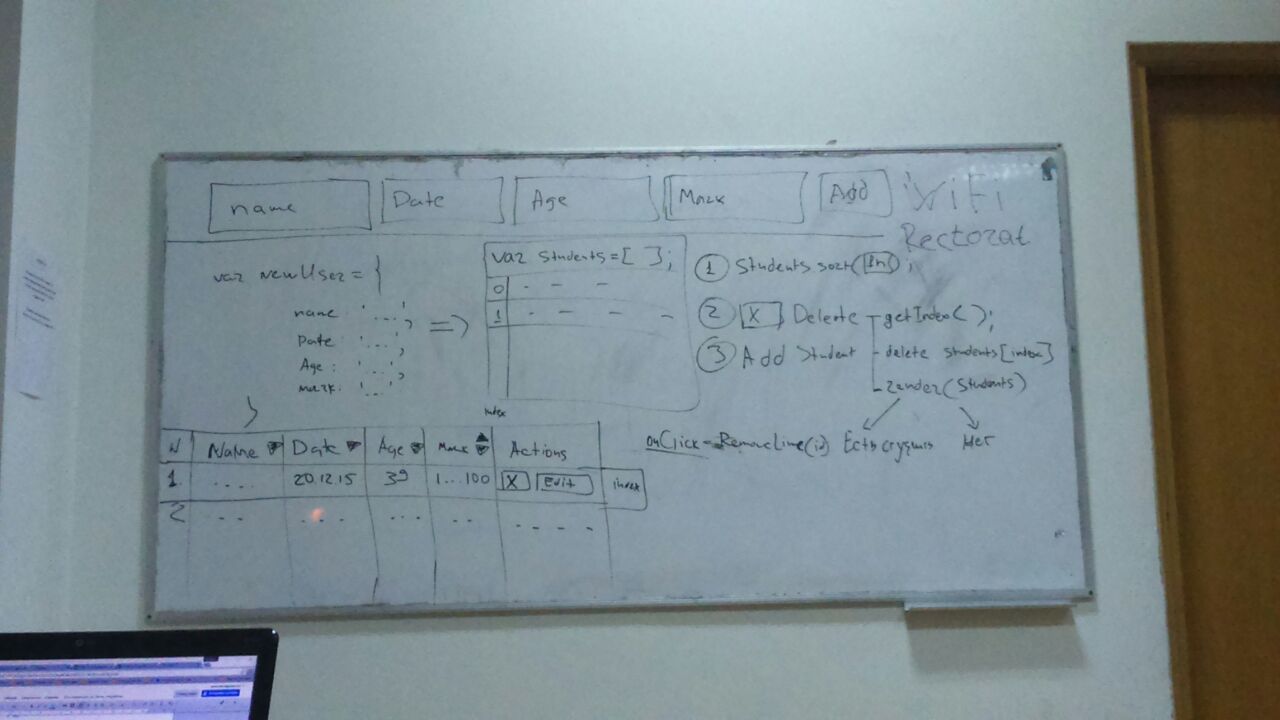 name Date Age Mark Add
WiFi
Rectorat
var newUser = {
name: '...',
Date: '...',
Age: '...',
mark: '...'
=>
var students = [ ];
0 - - -
1 - - - -
index
1 Students.sort(fn);
2 X Delete - getIndex();
3 Add Student - delete students[index]
- render(students)
onClick = RemoveLine(i) Есть студент Нет
N Name Date Age Mark Actions
1. .... 20.12.15 39 1...100 X Edit index
2 .. .... ... .. - - - -